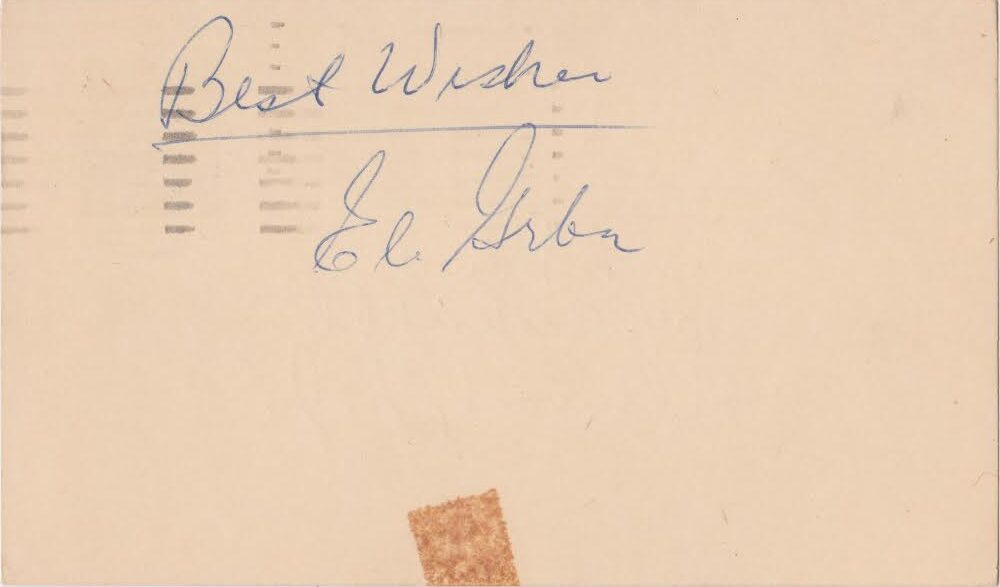 Best Wishes
Eli Grba